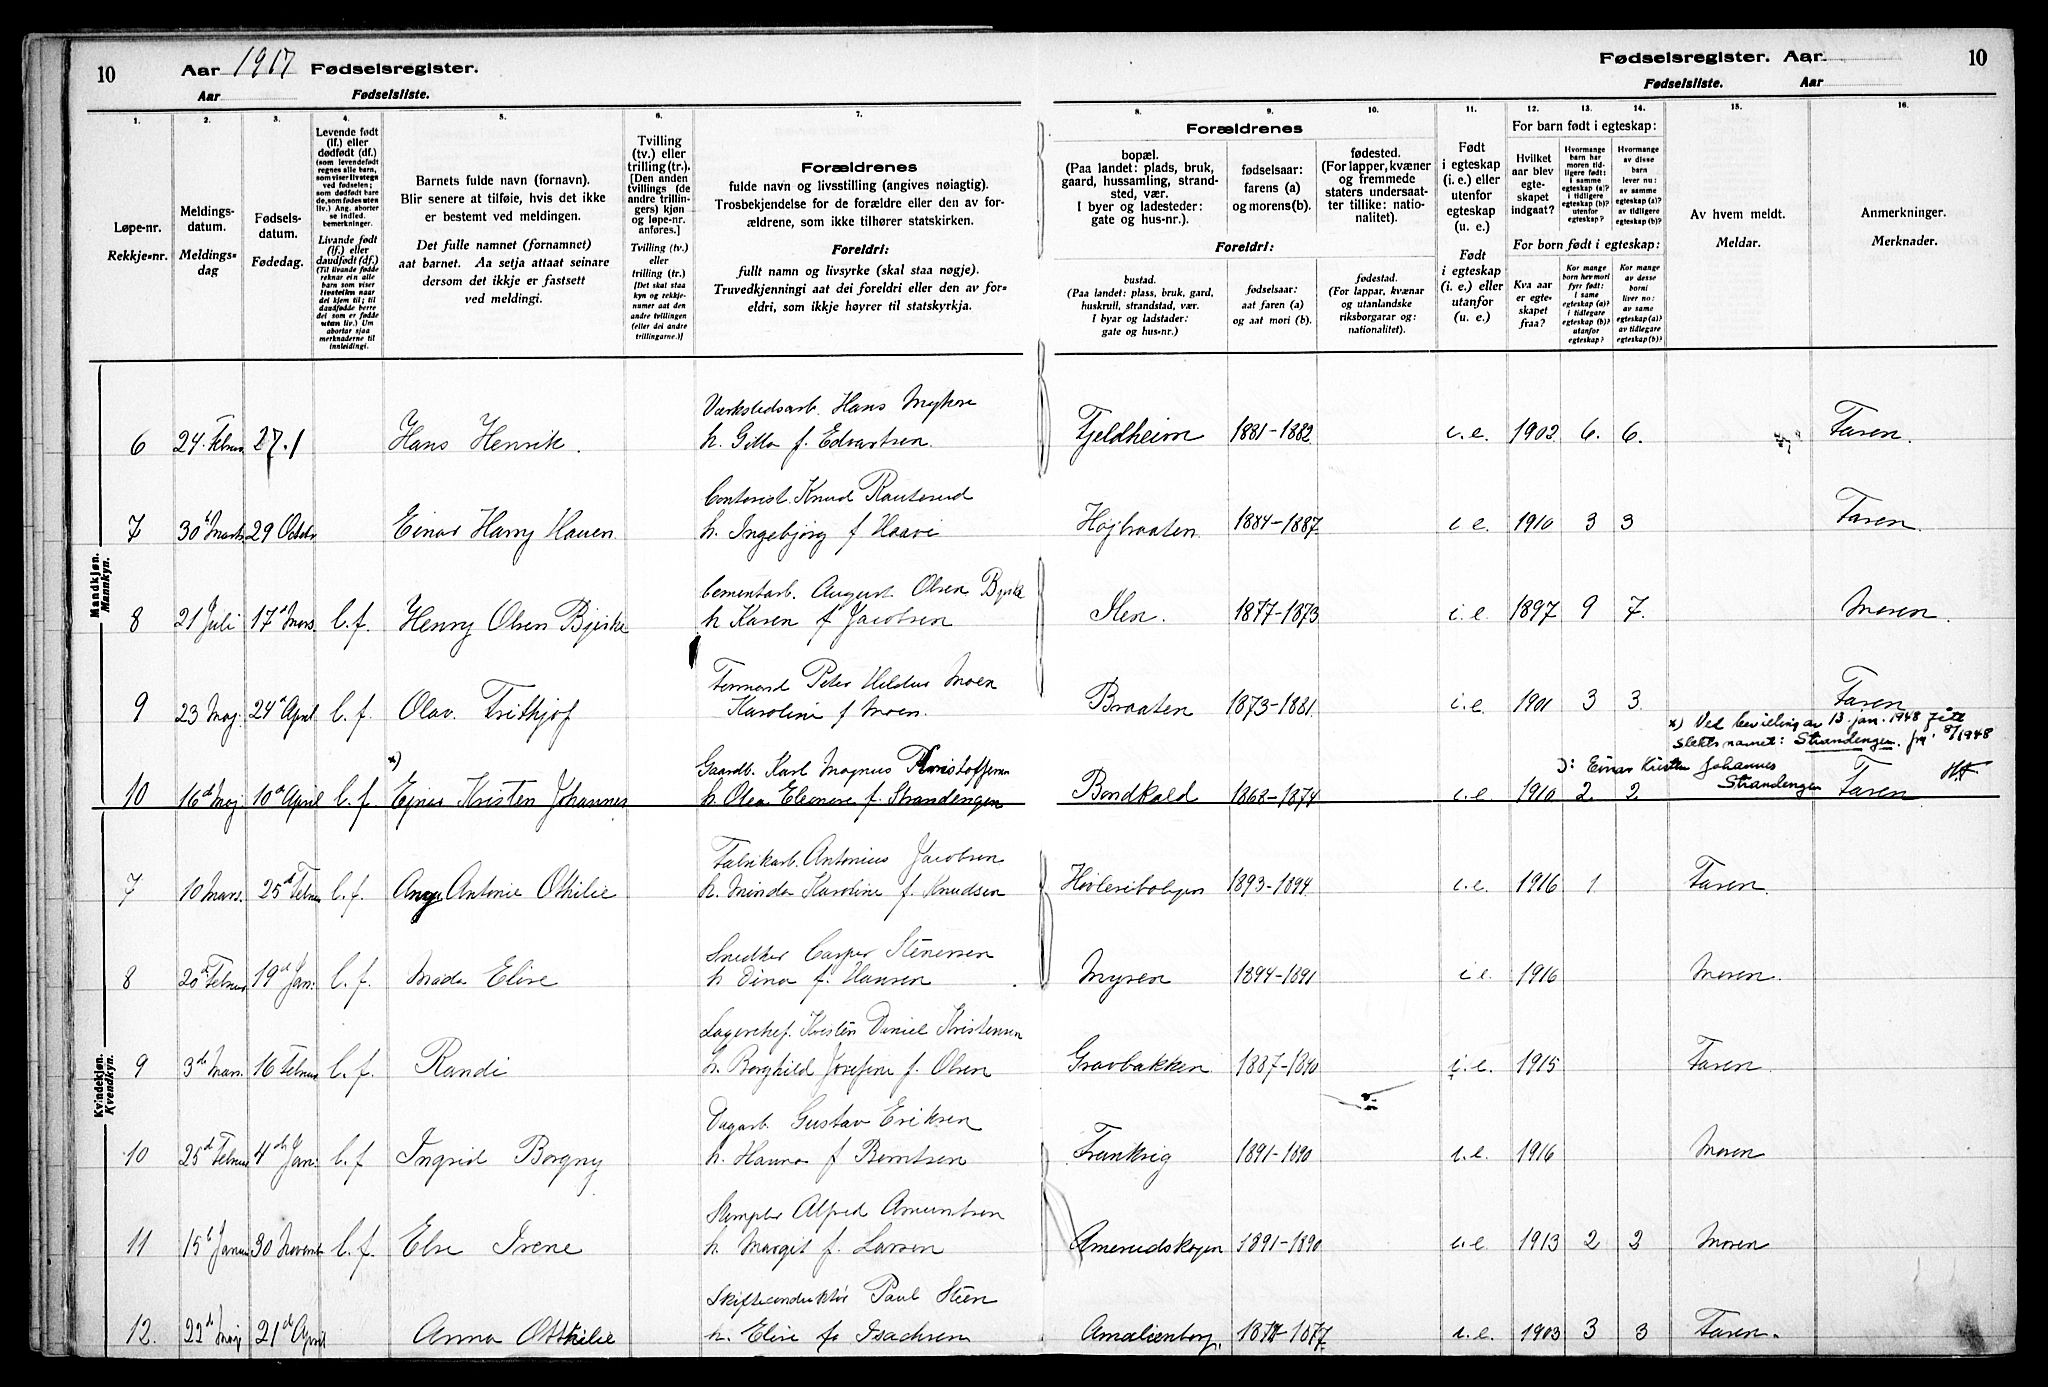 10 Aar 1917 Fødselsregister.
Aar Fødselsliste.
Fødselsregister. Aar 10
Fødselsliste. Aar
1. 2. 3. 4. 5. 6. 7. 8. 9. 10. 11. 12. 13. 14. 15. 16.
Løpe-nr.
Rekkje-nr.
Meldings-
datum.
Meldings-
dag
Fødsels-
datum.
Fødedag.
Levende født
(lf.) eller
dødfødt (df.)
(som levendefødt
regnes alle barn,
som viser livstegn
ved fødselen;
som dødfødt bare
de, som fødes uten
liv.) Ang. aborter
se indled.
bemerkninger.
Livande født
(lf.) eller
daudfødt (df.)
(Til livande fødde
reknar ein alle
born som viser
livsteikn naar
dei kjem til; til
daudfødde berre
dei som er fødde
utan liv.) Um
abortar sjaa
merknaderne til
innleidingi.
Barnets fulde navn (fornavn).
Blir senere at tilføie, hvis det ikke
er bestemt ved meldingen.
Det fulle namnet (fornamnet)
aat barnet. Aa setja attaat seinare
dersom det ikkje er fastsett
ved meldingi.
Tvilling
(tv.) eller
trilling (tr.).
[Den anden
tvillings (de
andre trillin-
gers) kjøn
og løpe-nr.
anføres.]
Tvilling (tv.)
eller
trilling (tr.)
[Det skal staa
kyn og rekkje-
numer aat den
andre tvillingen
(eller dei andre
trillingarne.)]
Forældrenes
fulde navn og livsstilling (angives nøiagtig).
Trosbekjendelse for de forældre eller den av for-
ældrene, som ikke tilhører statskirken.
Foreldri:
fullt namn og livsyrke (skal staa nøgje).
Truvedkjenningi aat dei foreldri eller den av for-
eldri, som ikkje høyrer til statskyrkja.
Forældrenes
bopæl.
(Paa landet: plads, bruk,
gaard, hussamling, strand-
sted, vær.
I byer og ladesteder:
gate og hus-nr.).
fødselsaar:
farens (a)
og morens (b).
fødested.
(For lapper, kvæner
og fremmede
staters undersaat-
ter tillike: natio-
nalitet).
Foreldri:
bustad.
(Paa landet: plass, bruk, gard,
huskrull, strandstad, vær.
I byar og ladstader:
gate og hus-nr.)
fødselsaar:
aat faren (a)
og aat mori (b).
fødestad.
(For lappar, kvænar
og utanlandske
riksborgarar og:
nationalitet).
Født
i egteskap
(i. e.) eller
utenfor
egteskap
(u. e.)
Født
i egteskap
(i. e.) eller
utanfor
egteskap
(u. e.)
For barn født i egteskap:
Hvilket
aar blev
egte-
skapet
indgaat?
Hvormange
barn har
moren tid-
ligere født:
i samme
egteskap (a)?
i tidligere
egteskap (b)?
utenfor
egteskap?
Hvormange
av disse
barn
lever nu:
av samme
egteskap (a)?
av tidligere
egteskap (b)?
For born født i egteskap:
Kva aar
er egte-
skapet
fraa?
Kor mange
born hev mori
fyrr født:
i same
egteskap (a)?
i tidlegare
egteskap (b)?
utanfor
egteskap?
Kor mange
av desse
borni
liver no:
av same
egteskap (a)?
av tidlegare
egteskap (b)?
Av hvem meldt.
Meldar.
Anmerkninger.
Merknader.
Mandkjøn.
Mannkyn.
Værkstedsarb. Hans Myhre
6 24. Febru 27.1 Hans Henrik. h. Gitta f. Edvartsen. Fjeldheim 1881-1882 i.e. 1902 6. 6. Faren.
Contorist. Knud Rauterud
7 30 Marts 29 Octobr Einar Harry Hauen h. Ingebjørg f Haavi Højbraaten 1884-1887. i e. 1910 3 3 Faren.
Cementarb. August Olsen Bjerke
8 21 Juli 17 Mars. l.f. Henry Olsen Bjerke h Karen f Jacobsen Ilen. 1877-1873 i.e. 1897 9 7. Moren.
Formand Peter Moen
9 23 Maj. 24 April l.f. Olav. Frithjof Karoline f Moen. Braaten 1873-1881 i.e. 1901 3 3. Faren
x) Ved bevilling av 13. jan. 1948 fått
slektsnavnet: Strandengen. 8/1948
x)
Gaardb. Karl Magnus Kristoffersen
ɔ: Einar Kristen Johannes
Strandengen
10 16 Maj 10 April l.f Ejnar Kristen Johannes h. Olea Eleonore f. Strandengen Bondkald 1868-1874 i.e. 1910 2. 2 Faren
Kvindekjøn.
Kvendkyn.
Fabrikarb. Antonius Jacobsen
7 10 Mars. 25 Febru l.f. Antonie Othilie h. Minda Karoline f. Knudsen 1893-1894. i.e. 1916 1 Faren.
Snedker Casper Stenersen
8 20 Febru 19 Jan: l.f. Mada Elise h Dina f. Hansen Myren 1894-1891 i e. 1916 Moren.
Lagerchef. Kristen Daniel Kristensen
9 3 Mars. 16 Febru l.f. Randi h. Borghild Josefine f. Olsen Gravbakken 1887-1890 i.e. 1915 Faren.
Dagarb. Gustav Eriksen
10 25 Febru 4 Jan: l.f Ingrid Borgny h. Hanna f Berntsen Frankrig 1891-1890 i.e. 1916 Moren
Stempler Alfred Amundsen
11 15 Janu 30 Novemb l.f. Else Irene h. Margit f. Larsen Amerudskogen 1891-1890 i.e. 1913 2 2 Moren
Skifteconduktør Paul Steen
12. 22 Maj 21 April Anna Otthilie h. Elise f. Isachsen Amalienborg. 1878-1877. i.e. 1903 3 3 Faren.